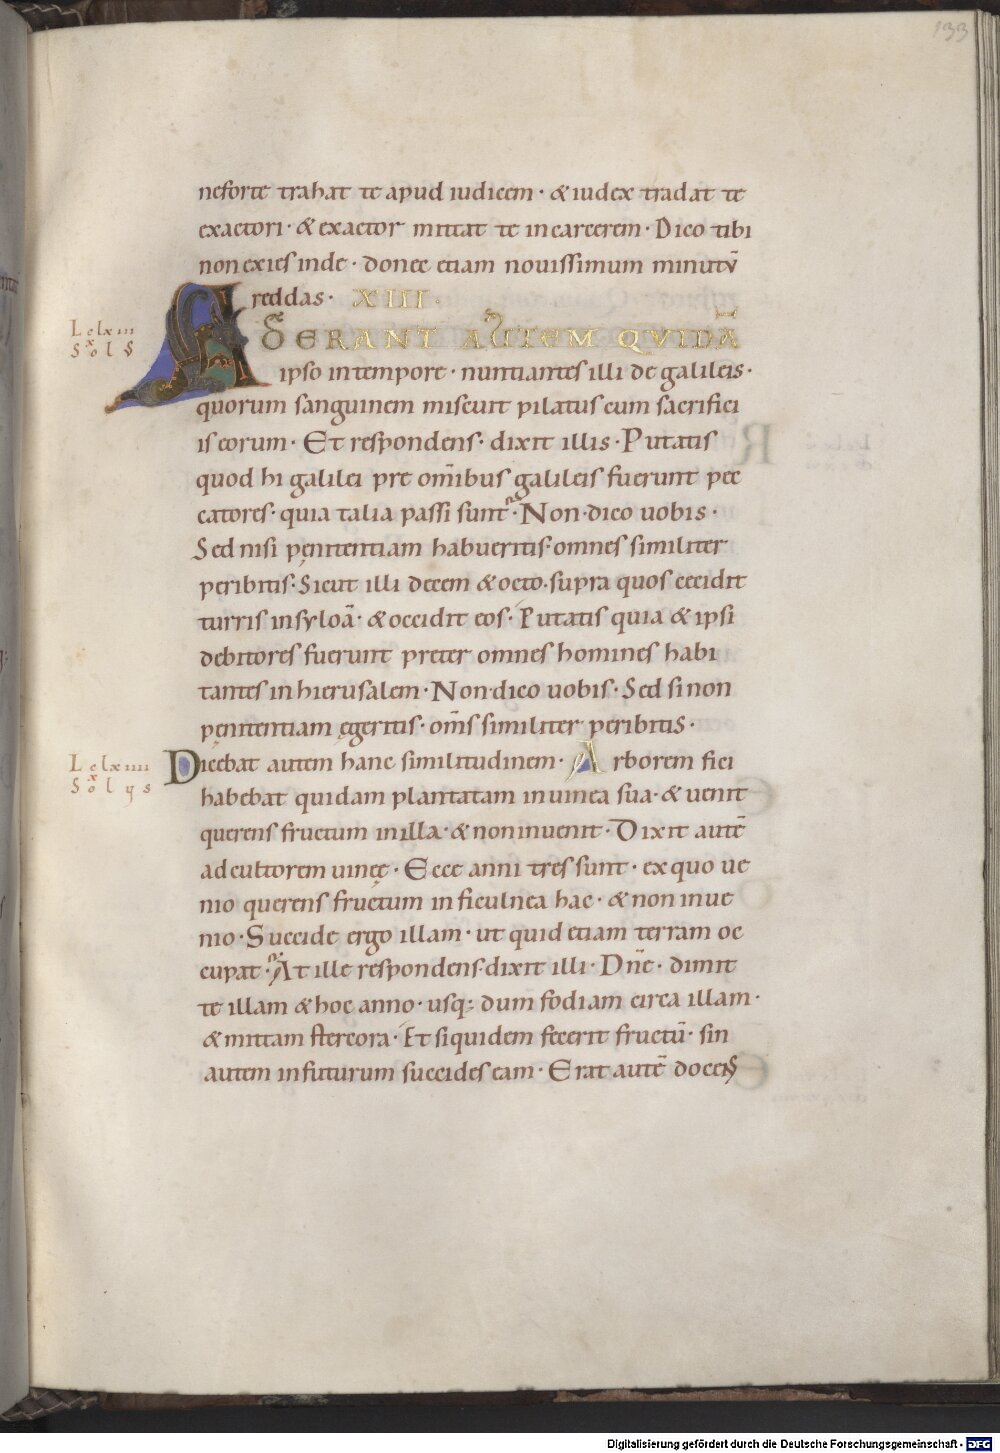 133
neforte trahat te apud iudicem · & iudex tradat te
exactori · & exactor mittat te in carcerem · Dico tibi
non exies inde · donec etiam nouissimum minutū
reddas · XIII ·
L clxiii
S ol S
x
ADERANT AUTEM QVIDĀ
ipso in tempore · nuntiantes illi de galileis ·
quorum sanguinem miscuit pilatus cum sacrifici
is eorum · Et respondens · dixit illis · Putatis
quod hi galilei pre om̄ibus galileis fuerunt pec
catores · quia talia passi sunt · Non · dico uobis ·
Sed nisi penitentiam habueritis · omnes similiter
peribitis · Sicut illi decem & octo · supra quos cecidit
turris in syloā · & occidit eos · Putatis quia & ipsi
debitores fuerunt preter omnes homines habi
tantes in hierusalem · Non · dico uobis · Sed si non
penitentiam egeritis · om̄s similiter peribitis ·
L clxiiii
S ol
x
Dicebat autem hanc similitudinem · Arborem fici
habebat quidam plantatam in uinea sua · & uenit
querens fructum in illa · & non inuenit · Dixit autē
ad cultorem uineę · Ecce anni tres sunt · ex quo ue
nio querens fructum in ficulnea hac · & non inue
nio · Succide ergo illam · ut quid etiam terram oc
cupat · At ille respondens · dixit illi · Dn̄e · dimit
te illam & hoc anno · usq; dum fodiam circa illam ·
& mittam stercora · Et siquidem fecerit fructū · sin
autem in futurum succides eam · Erat autē docens
Digitalisierung gefördert durch die Deutsche Forschungsgemeinschaft - DFG